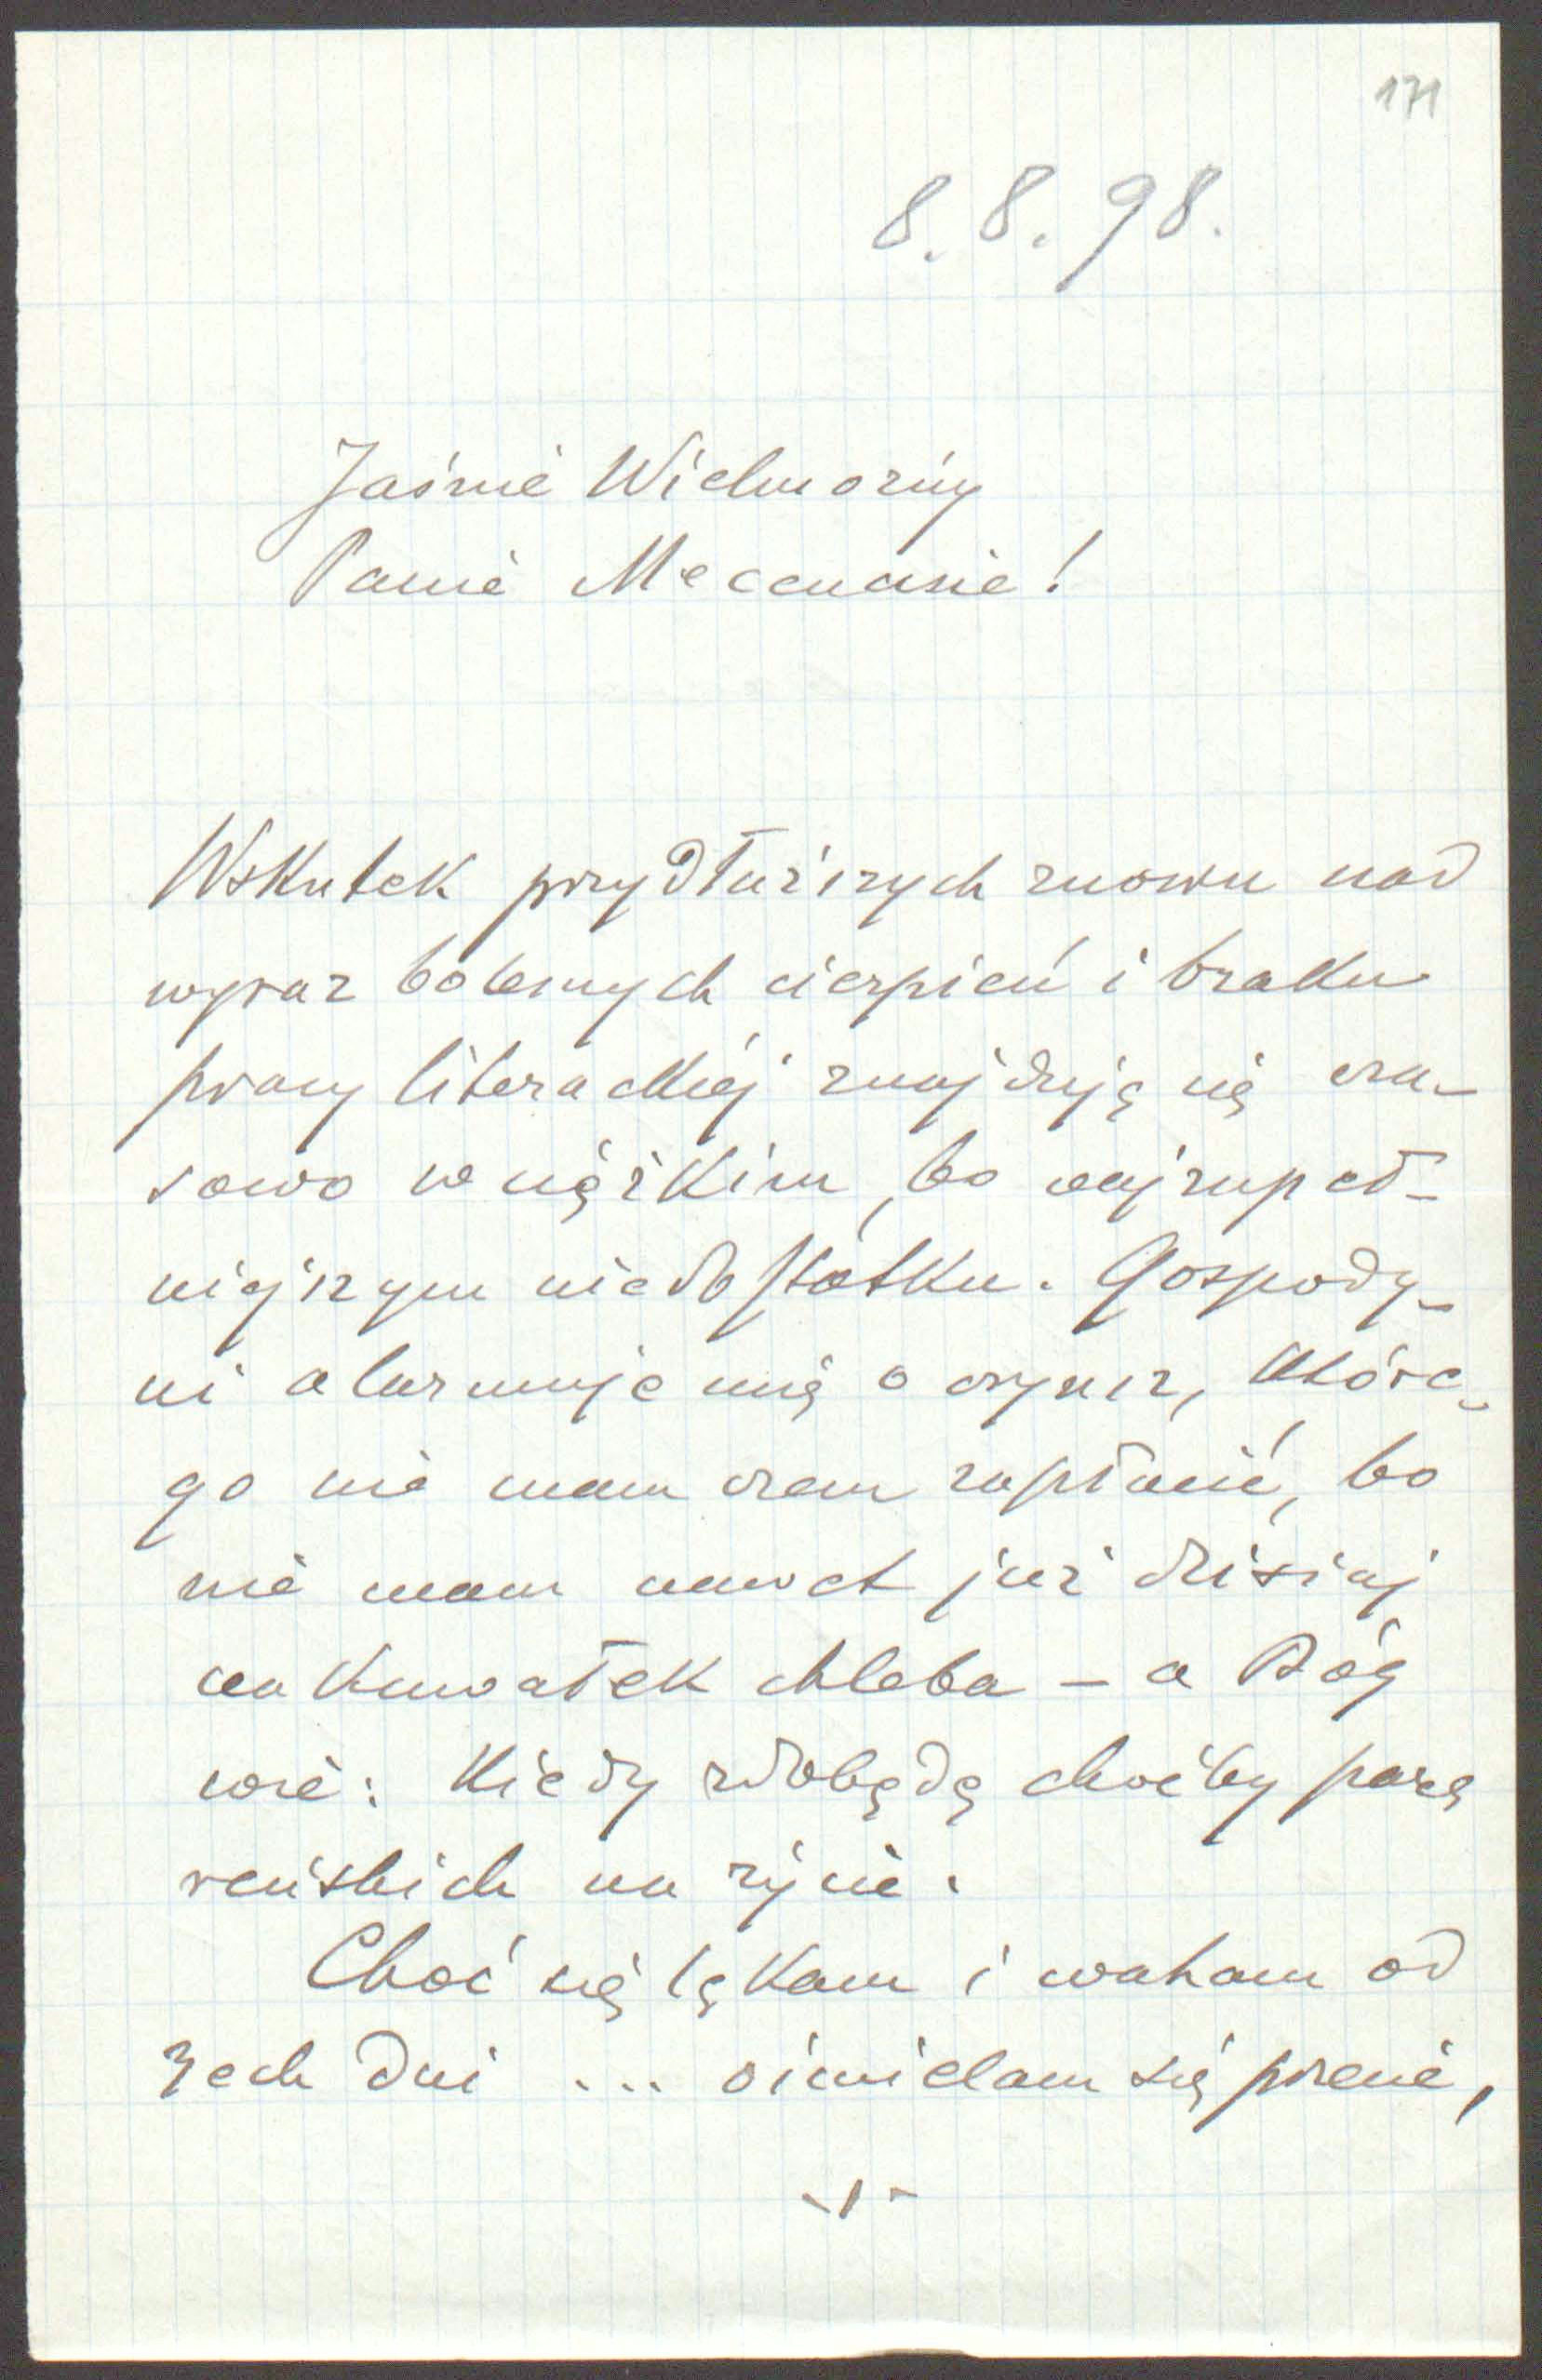 171
8. 8. 98.
Jaśnie Wielmożny
Panie Mecenasie!
Wskutek przydłuższych znowu nad
wyraz bolesnych cierpień i braku
pracy literackiej znajduję się cza-
sowo w ciężkim, bo najzupeł-
niejszym niedostatku. Gospody-
ni alarmuje mię o czynsz, które-
go nie mam czem zapłacić, bo
nie mam nawet już dzisiaj
na kawałek chleba – a Bóg
wie: kiedy zdobędę choćby parę
reńskich na życie.
Choć się lękam i waham od
3ech dni ... ośmielam się przecie,
-1-